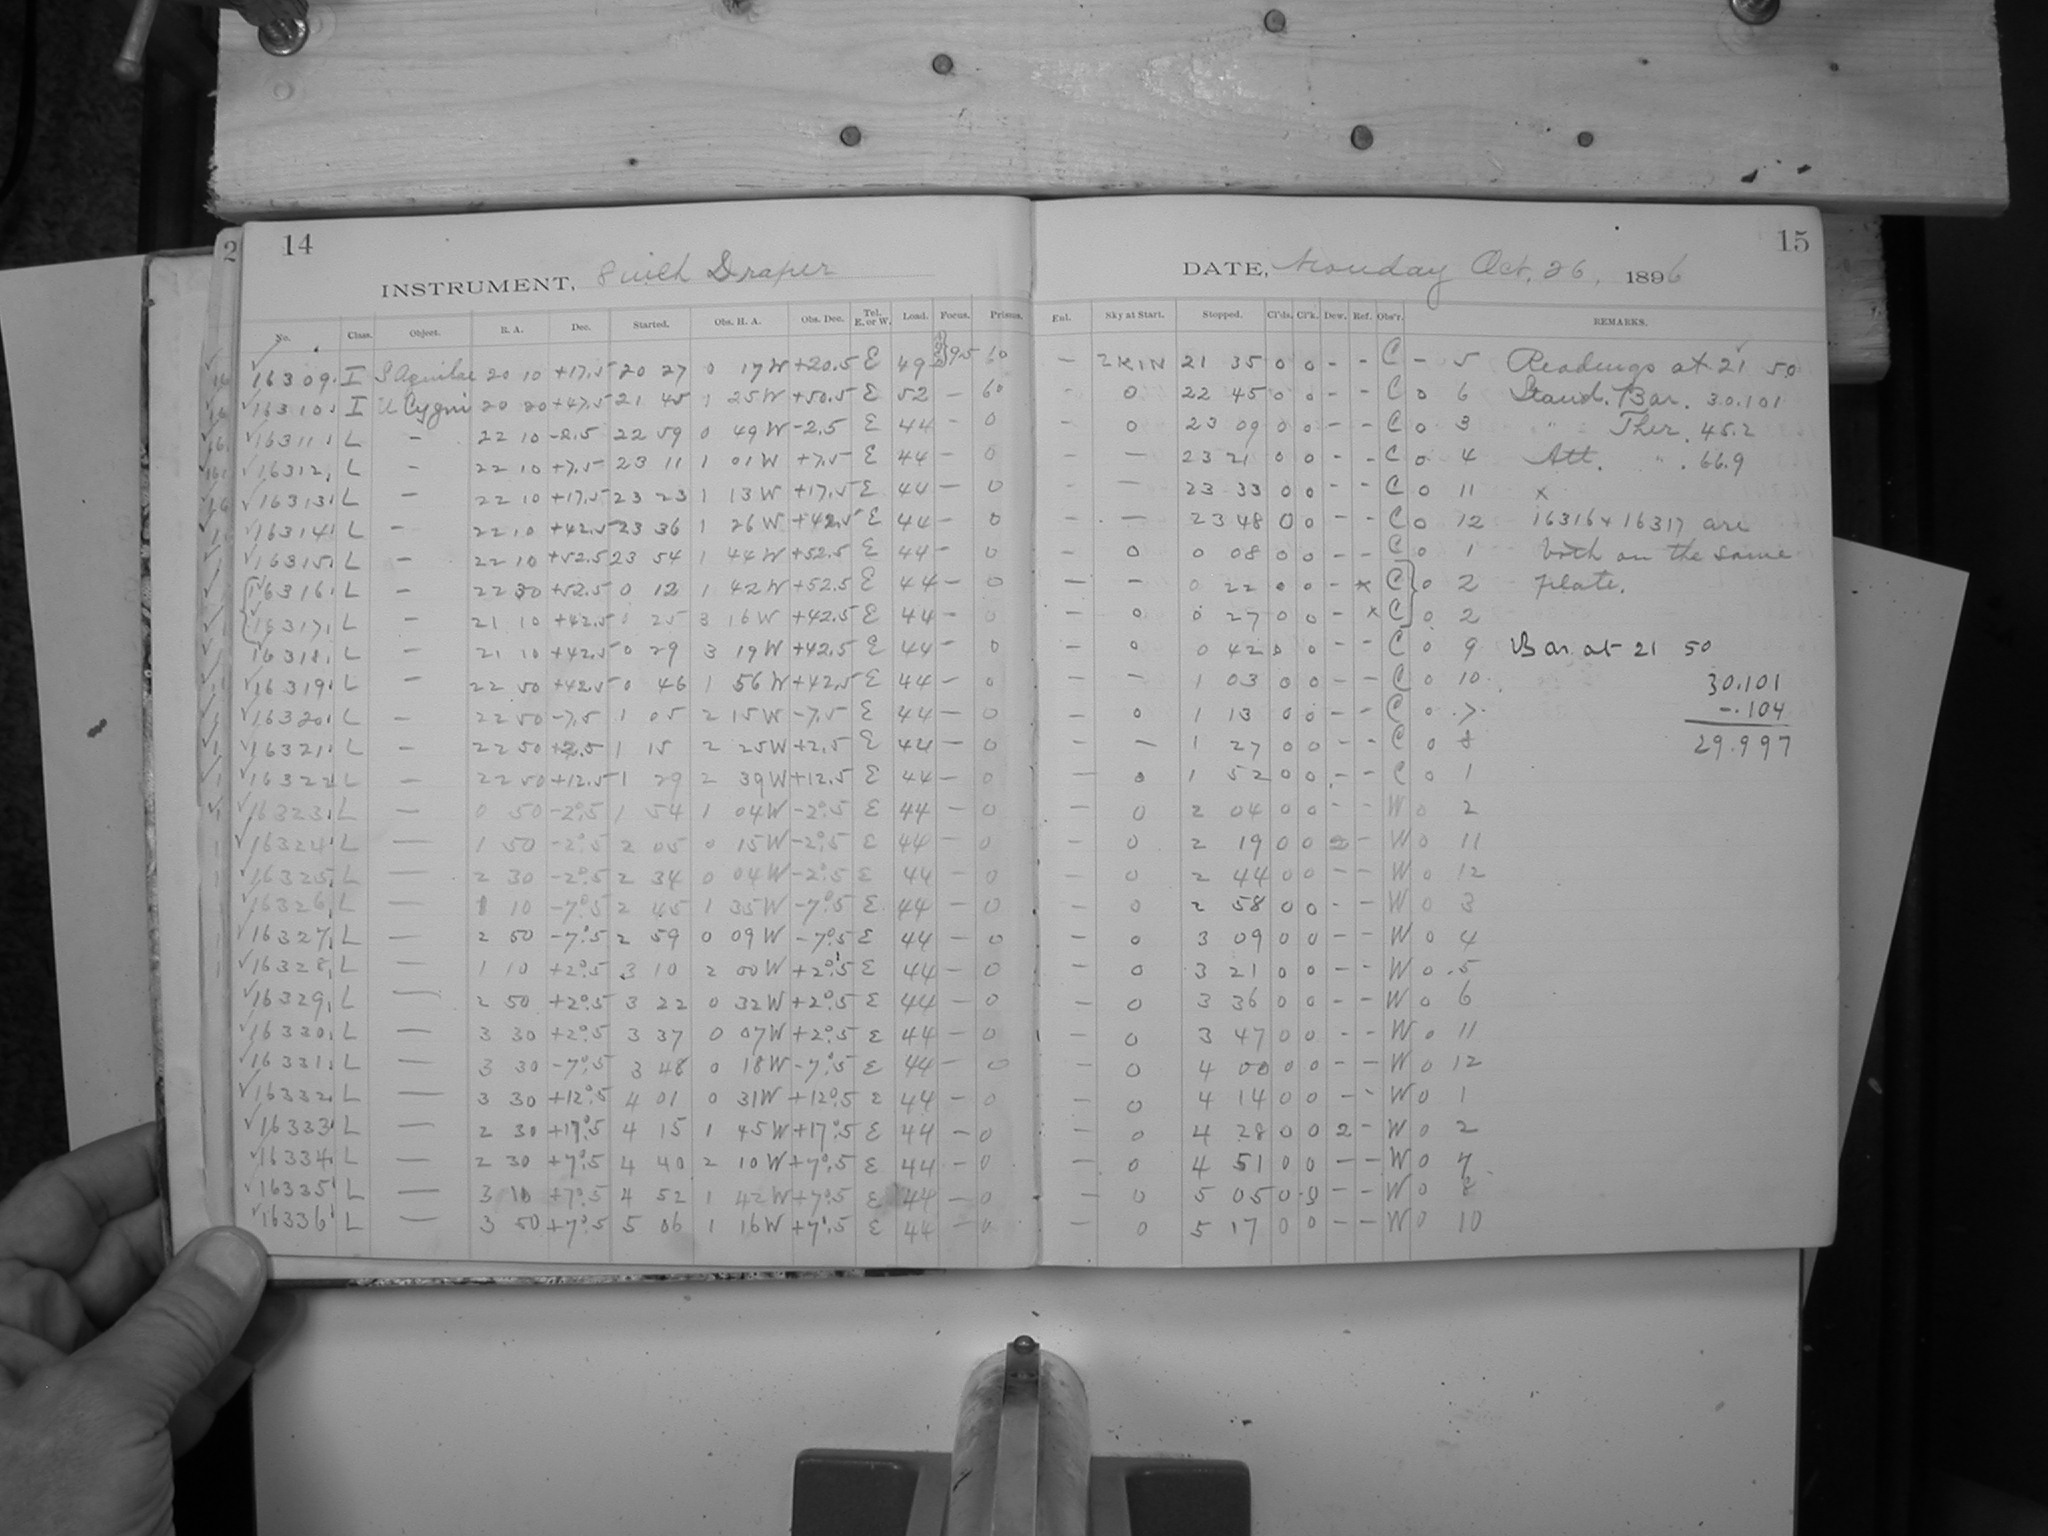 2 14 15
INSTRUMENT, 8 inch Draper DATE, Monday Oct. 26, 1896
No. Class. Object. R. A. Dec. Started. Obs. H. A. Obs. Dec. Tel. E. or W. Load. Focus. Prisms. Eul. Sky at Start. Stopped. Cl'ds. Cl'k. Dew. Ref. Obs'r. REMARKS.
16309 I S Aquilae 20 10 +17.5 20 27 0 17W +20.5 E 49 9.5 60 — 2KIN 21 35 0 0 - - C - 5 Readings at 21 50
16310 I U Cygni 20 20 +47.5 21 45 1 25W +50.5 E 52 — 60 - 0 22 45 0 0 - - C 0 6 Stand. Bar. 30.101
16311 L - 22 10 -2.5 22 59 0 49W -2.5 E 44 - 0 - 0 23 09 0 0 - - C 0 3 " Ther. 45.2
16312 L - 22 10 +7.5 23 11 1 01W +7.5 E 44 - 0 - — 23 21 0 0 - - C 0 4 Att. " . 66.9
16313 L - 22 10 +17.5 23 23 1 13W +17.5 E 44 — 0 - — 23 33 0 0 - - C 0 11 x
16314 L - 22 10 +42.5 23 36 1 26W +42.5 E 44 - 0 - — 23 48 0 0 - - C 0 12 16316 + 16317 are
16315 L - 22 10 +52.5 23 54 1 44W +52.5 E 44 - 0 - 0 0 08 0 0 - - C 0 1 both on the same
16316 L - 22 30 +52.5 0 12 1 42W +52.5 E 44 - 0 — - 0 22 0 0 - x C 0 2 plate.
16317 L - 21 10 +42.5 0 25 3 16W +42.5 E 44 - 0 - 0 0 27 0 0 - x C 0 2
16318 L - 21 10 +42.5 0 29 3 19W +42.5 E 44 - 0 - 0 0 42 0 0 - - C 0 9 Bar. at 21 50
16319 L - 22 50 +42.5 0 46 1 56W +42.5 E 44 — 0 - - 1 03 0 0 - - C 0 10 30.101
16320 L - 22 50 -7.5 1 05 2 15W -7.5 E 44 — 0 - 0 1 13 0 0 - - C 0 7 -.104
16321 L - 22 50 +2.5 1 15 2 25W +2.5 E 44 — 0 - — 1 27 0 0 - - C 0 8 29.997
16322 L - 22 50 +12.5 1 29 2 39W +12.5 E 44 — 0 — 0 1 52 0 0 - - C 0 1
16323 L — 0 50 -2°.5 1 54 1 04W -2°.5 E 44 — 0 - 0 2 04 0 0 - - W 0 2
16324 L — 1 50 -2°.5 2 05 0 15W -2°.5 E 44 - 0 - 0 2 19 0 0 2 - W 0 11
16325 L — 2 30 -2°.5 2 34 0 04W -2°.5 E 44 - 0 — 0 2 44 0 0 - - W 0 12
16326 L — 1 10 -7°.5 2 45 1 35W -7°.5 E 44 - 0 - 0 2 58 0 0 - - W 0 3
16327 L — 2 50 -7°.5 2 59 0 09W -7°.5 E 44 - 0 - 0 3 09 0 0 - - W 0 4
16328 L — 1 10 +2°.5 3 10 2 00W +2°.5 E 44 - 0 - 0 3 21 0 0 - - W 0 5
16329 L — 2 50 +2°.5 3 22 0 32W +2°.5 E 44 - 0 - 0 3 36 0 0 - - W 0 6
16330 L — 3 30 +2°.5 3 37 0 07W +2°.5 E 44 - 0 - 0 3 47 0 0 - - W 0 11
16331 L — 3 30 -7°.5 3 48 0 18W -7°.5 E 44 - 0 — 0 4 00 0 0 - - W 0 12
16332 L — 3 30 +12°.5 4 01 0 31W +12°.5 E 44 - 0 — 0 4 14 0 0 - - W 0 1
16333 L — 2 30 +17°.5 4 15 1 45W +17°.5 E 44 - 0 - 0 4 28 0 0 2 - W 0 2
16334 L — 2 30 +7°.5 4 40 2 10W +7°.5 E 44 - 0 — 0 4 51 0 0 - - W 0 7
16335 L — 3 10 +7°.5 4 52 1 42W +7°.5 E 44 - 0 - 0 5 05 0 0 - - W 0 8
16336 L — 3 50 +7°.5 5 06 1 16W +7°.5 E 44 - 0 — 0 5 17 0 0 - - W 0 10